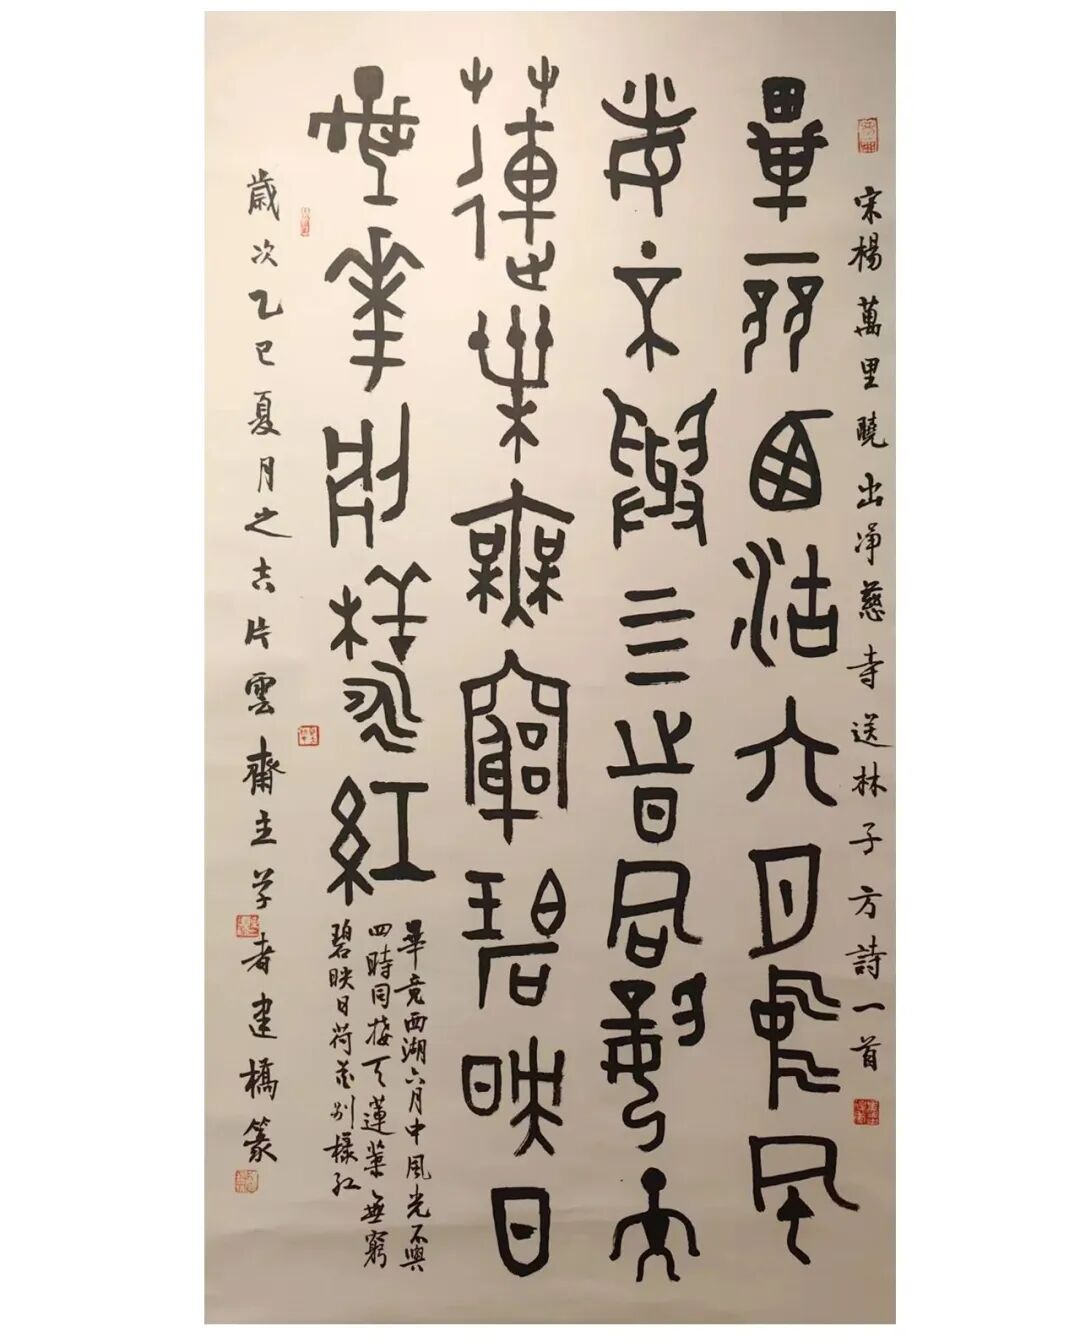 宋楊萬里曉出净慈寺送林子方詩一首
畢竟西湖六月中風
光不與四時同接天
蓮葉無窮碧映日
荷華別樣紅
畢竟西湖六月中風光不與
四時同接天蓮葉無窮
碧映日荷花别樣红
歲次乙巳夏月之吉片雲齋主学者建橋篆